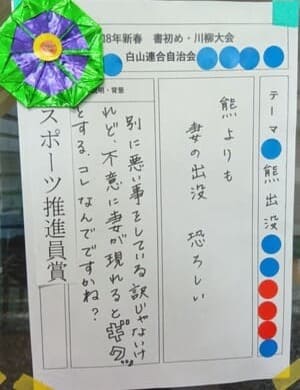 8年新春 書初め・川柳大会
白山連合自治会
テーマ 熊出没
熊よりも
妻の出没 恐ろしい
明・背景
別に悪い事をしている訳じゃないけ
れど、不意に妻が現れるとギクッ
とする、コレなんでですかね?
スポーツ推進員賞